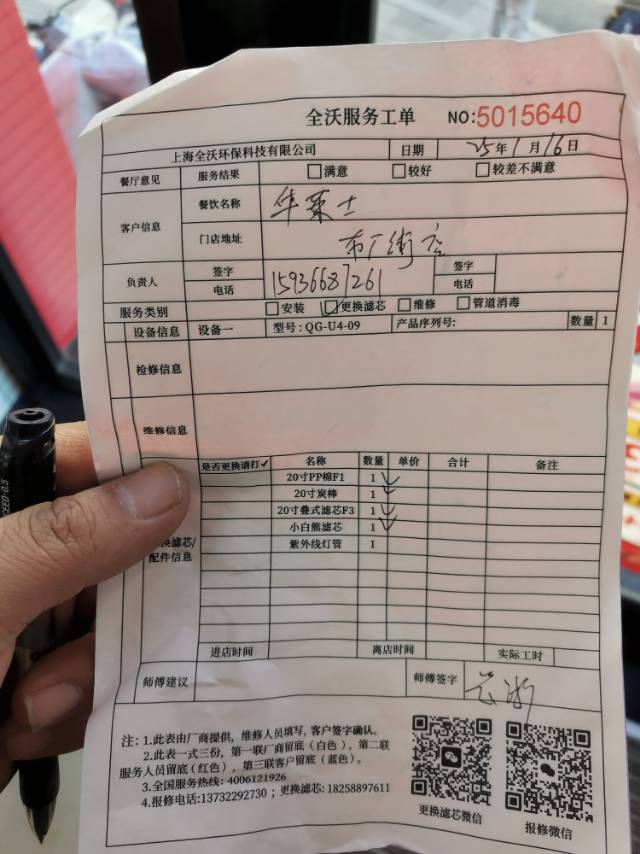 全沃服务工单 NO:5015640
上海全沃环保科技有限公司 日期 25年1月16日
餐厅意见 服务结果 满意 较好 较差不满意
客户信息 餐饮名称 华莱士
门店地址 布厂街店
负责人 签字 签字
电话 15936687261 电话
服务类别 安装 更换滤芯 维修 管道消毒
设备信息 设备一 型号:QG-U4-09 产品序列号: 数量 1
检修信息
维修信息
是否更换请打✓ 名称 数量 单价 合计 备注
20寸PP棉F1 1 ✓
20寸炭棒 1 ✓
20寸叠式滤芯F3 1 ✓
小白熊滤芯 1 ✓
换滤芯/
配件信息
紫外线灯管 1
进店时间 离店时间 实际工时
师傅建议 师傅签字
注：1.此表由厂商提供，维修人员填写，客户签字确认。
2.此表一式三份，第一联厂商留底(白色)，第二联
服务人员留底(红色)，第三联客户留底(蓝色)。
3.全国服务热线：4006121926
4.报修电话:13732292730；更换滤芯:18258897611
更换滤芯微信
报修微信